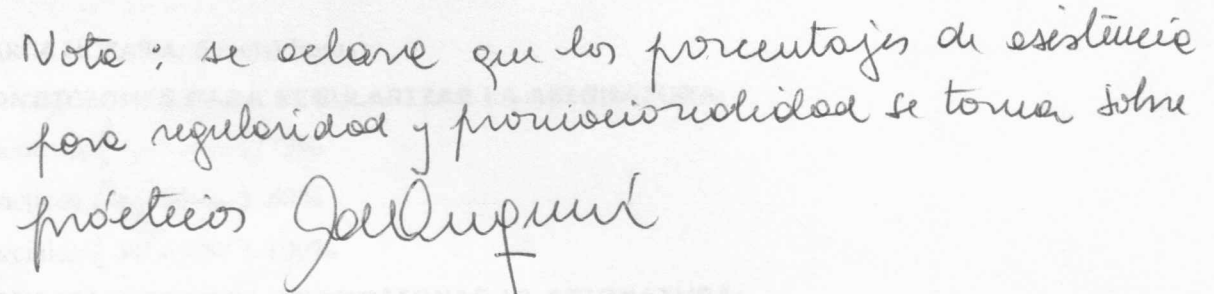 Nota: se aclara que los porcentajes de asistencia
para regularidad y promocionalidad se toma sobre
prácticos